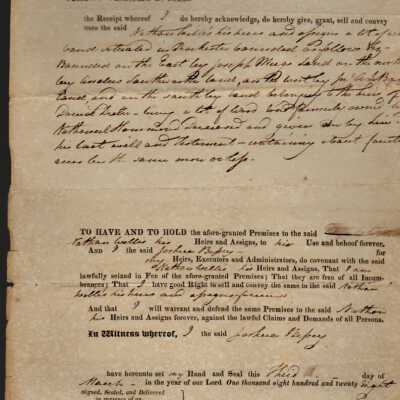 the Receipt whereof I do hereby acknowledge, do hereby give, grant, sell and convey
unto the said Nathan Willis his heirs and assigns a lot of
land situated in Rochester bounded as follows Viz
Bounded on the East by Joseph land on the north
by land, on the west by
land, and on the south by land belonging to the heirs of
being a lot of land was formerly owned by
Nathaniel Hammond deceased and given by him in
his last will and Testament containing about
acres be the same more or less.
TO HAVE AND TO HOLD the afore-granted Premises to the said
Nathan Willis his Heirs and Assigns, to his Use and behoof forever.
And I the said Joshua for
my Heirs, Executors and Administrators, do covenant with the said
Nathan Willis his Heirs and Assigns, That I am
lawfully seized in Fee of the afore-granted Premises; That they are free of all Incum-
brances; That I have good Right to sell and convey the same to the said Nathan
Willis his heirs and assigns forever
And that I will warrant and defend the same Premises to the said Nathan
his Heirs and Assigns forever, against the lawful Claims and Demands of all Persons.
In Witness whereof, I the said Joshua
have hereunto set my Hand and Seal this Third day of
March in the year of our Lord One thousand eight hundred and twenty eight
signed, Sealed and Delivered
in presence of us